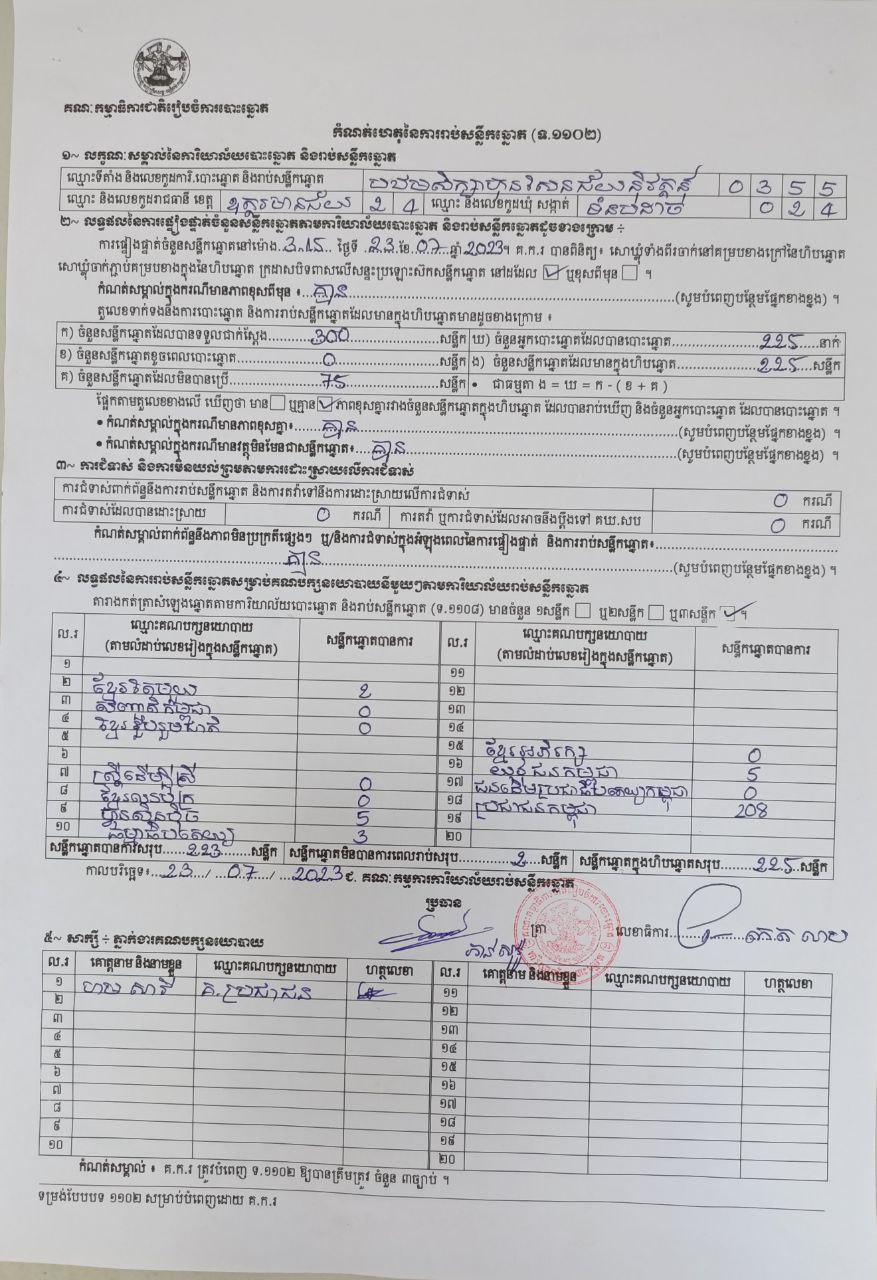 គណៈកម្មាធិការជាតិរៀបចំការបោះឆ្នោត
កំណត់ហេតុនៃការរាប់សន្លឹកឆ្នោត (ទ.១១០២)
១~ លក្ខណៈសម្គាល់នៃការិយាល័យបោះឆ្នោត និងរាប់សន្លឹកឆ្នោត
ឈ្មោះទីតាំង និងលេខកូដការិ.បោះឆ្នោត និងរាប់សន្លឹកឆ្នោត បឋមសិក្សាហ៊ុនសែនជ័យនិវត្តន៍ 0 3 5 5
ឈ្មោះ និងលេខកូដរាជធានី ខេត្ត ឧត្តរមានជ័យ 2 4 ឈ្មោះ និងលេខកូដឃុំ សង្កាត់ 0 2 4
២~ លទ្ធផលនៃការផ្ទៀងផ្ទាត់ចំនួនសន្លឹកឆ្នោតតាមការិយាល័យបោះឆ្នោត និងរាប់សន្លឹកឆ្នោតដូចខាងក្រោម ÷
ការផ្ទៀងផ្ទាត់ចំនួនសន្លឹកឆ្នោតនៅម៉ោង 3.15 ថ្ងៃទី 23 ខែ 07 ឆ្នាំ 2023។ គ.ក.រ បានពិនិត្យ៖ សោឃ្លុំទាំងពីរចាក់នៅគម្របខាងក្រៅនៃហិបឆ្នោត
សោឃ្លុំចាក់ភ្ជាប់គម្របខាងក្នុងនៃហិបឆ្នោត ក្រដាសបិទពាសលើសន្ទះប្រឡោះស៊កសន្លឹកឆ្នោត នៅដដែល ☑ ឬខុសពីមុន ☐ ។
កំណត់សម្គាល់ក្នុងករណីមានភាពខុសពីមុន ៖ គ្មាន (សូមបំពេញបន្ថែមផ្នែកខាងខ្នង) ។
តួលេខទាក់ទងនឹងការបោះឆ្នោត និងការរាប់សន្លឹកឆ្នោតដែលមានក្នុងហិបឆ្នោតមានដូចខាងក្រោម ៖
ក) ចំនួនសន្លឹកឆ្នោតដែលបានទទួលជាក់ស្តែង 300 សន្លឹក ឃ) ចំនួនអ្នកបោះឆ្នោតដែលបានបោះឆ្នោត 225 នាក់
ខ) ចំនួនសន្លឹកឆ្នោតខូចពេលបោះឆ្នោត 0 សន្លឹក ង) ចំនួនសន្លឹកឆ្នោតដែលមានក្នុងហិបឆ្នោត 225 សន្លឹក
គ) ចំនួនសន្លឹកឆ្នោតដែលមិនបានប្រើ 75 សន្លឹក • ជាធម្មតា ង = ឃ = ក - ( ខ + គ )
ផ្អែកតាមតួលេខខាងលើ ឃើញថា មាន ☐ ឬគ្មាន ☑ ភាពខុសគ្នារវាងចំនួនសន្លឹកឆ្នោតក្នុងហិបឆ្នោត ដែលបានរាប់ឃើញ និងចំនួនអ្នកបោះឆ្នោត ដែលបានបោះឆ្នោត ។
• កំណត់សម្គាល់ក្នុងករណីមានភាពខុសគ្នា៖ គ្មាន (សូមបំពេញបន្ថែមផ្នែកខាងខ្នង) ។
• កំណត់សម្គាល់ក្នុងករណីមានវត្ថុមិនមែនជាសន្លឹកឆ្នោត៖ គ្មាន (សូមបំពេញបន្ថែមផ្នែកខាងខ្នង) ។
៣~ ការជំទាស់ និងការមិនយល់ព្រមតាមការដោះស្រាយលើការជំទាស់
ការជំទាស់ពាក់ព័ន្ធនឹងការរាប់សន្លឹកឆ្នោត និងការតវ៉ាទៅនឹងការដោះស្រាយលើការជំទាស់ 0 ករណី
ការជំទាស់ដែលបានដោះស្រាយ 0 ករណី ការតវ៉ា ឬការជំទាស់ដែលអាចនឹងប្តឹងទៅ គឃ.សប 0 ករណី
កំណត់សម្គាល់ពាក់ព័ន្ធនឹងភាពមិនប្រក្រតីផ្សេងៗ ឬ/និងការជំទាស់ក្នុងអំឡុងពេលនៃការផ្ទៀងផ្ទាត់ និងការរាប់សន្លឹកឆ្នោត៖
គ្មាន (សូមបំពេញបន្ថែមផ្នែកខាងខ្នង) ។
៤~ លទ្ធផលនៃការរាប់សន្លឹកឆ្នោតសម្រាប់គណបក្សនយោបាយនីមួយៗតាមការិយាល័យរាប់សន្លឹកឆ្នោត
តារាងកត់ត្រាសំឡេងឆ្នោតតាមការិយាល័យបោះឆ្នោត និងរាប់សន្លឹកឆ្នោត (ទ.១១០៨) មានចំនួន ១សន្លឹក ☐ ឬ២សន្លឹក ☐ ឬ៣សន្លឹក ☑ ។
ល.រ ឈ្មោះគណបក្សនយោបាយ សន្លឹកឆ្នោតបានការ ល.រ ឈ្មោះគណបក្សនយោបាយ សន្លឹកឆ្នោតបានការ
(តាមលំដាប់លេខរៀងក្នុងសន្លឹកឆ្នោត) (តាមលំដាប់លេខរៀងក្នុងសន្លឹកឆ្នោត)
១ ១១
២ ខ្មែរតែមួយ 2 ១២
៣ សញ្ជាតិកម្ពុជា 0 ១៣
៤ ខ្មែររួបរួមជាតិ 0 ១៤
៥ ១៥ ខ្មែរអភិរក្ស 0
៦ ១៦ យុវជនកម្ពុជា 5
៧ ស្ត្រីដើម្បីស្ត្រី 0 ១៧ ជនដើមប្រជាធិបតេយ្យកម្ពុជា 0
៨ ខ្មែរឈប់ក្រ 0 ១៨ ប្រជាជនកម្ពុជា 208
៩ ហ៊្វុនស៊ិនប៉ិច 5 ១៩
១០ ធម្មាធិបតេយ្យ 3 ២០
សន្លឹកឆ្នោតបានការសរុប 223 សន្លឹក សន្លឹកឆ្នោតមិនបានការពេលរាប់សរុប 2 សន្លឹក សន្លឹកឆ្នោតក្នុងហិបឆ្នោតសរុប 225 សន្លឹក
កាលបរិច្ឆេទ៖ 23 / 07 / 2023 ជ. គណៈកម្មការការិយាល័យរាប់សន្លឹកឆ្នោត
ប្រធាន
ត្រា លេខាធិការ
៥~ សាក្សី ÷ ភ្នាក់ងារគណបក្សនយោបាយ
ល.រ គោត្តនាម និងនាមខ្លួន ឈ្មោះគណបក្សនយោបាយ ហត្ថលេខា ល.រ គោត្តនាម និងនាមខ្លួន ឈ្មោះគណបក្សនយោបាយ ហត្ថលេខា
១ គ.ប្រជាជន ១១
២ ១២
៣ ១៣
៤ ១៤
៥ ១៥
៦ ១៦
៧ ១៧
៨ ១៨
៩ ១៩
១០ ២០
កំណត់សម្គាល់ ៖ គ.ក.រ ត្រូវបំពេញ ទ.១១០២ ឱ្យបានត្រឹមត្រូវ ចំនួន ៣ច្បាប់ ។
ទម្រង់បែបបទ ១១០២ សម្រាប់បំពេញដោយ គ.ក.រ